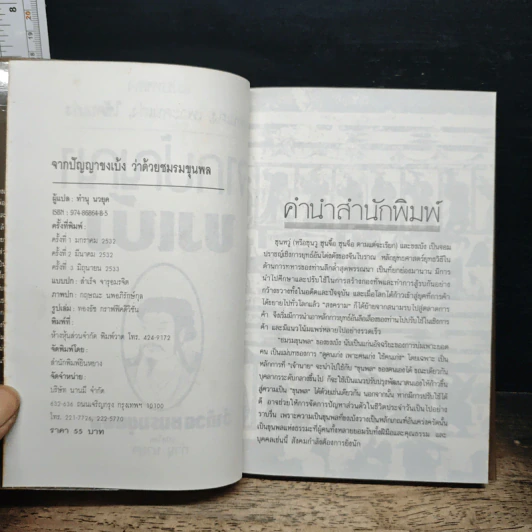 จากปัญญาขงเบ้ง ว่าด้วยชมรมขุนพล
ผู้แปล : ทำนุ นวยุค
ISBN : 974-86864-8-5
ครั้งที่พิมพ์ :
ครั้งที่ 1 มกราคม 2532
ครั้งที่ 2 มีนาคม 2532
ครั้งที่ 3 มิถุนายน 2533
แบบปก : สำเร็จ จารุอมรจิต
ภาพปก : กฤษณะ
รูปเล่ม : ทองธัช กราฟฟิคดีไซ้น์
พิมพ์ที่ :
ห้างหุ้นส่วนจำกัด พิมพ์วาด โทร. 424-9172
จัดพิมพ์โดย :
สำนักพิมพ์ยินหยาง
จัดจำหน่าย :
บริษัท นานมี จำกัด
432-636 ถนนเจริญกรุง กรุงเทพฯ 10100
โทร. 221-7736, 222-5710
ราคา 55 บาท
คำนำสำนักพิมพ์
ซุนหวู่ (หรือซุนวู ซุนจื่อ ซุนจื้อ ตามแต่จะเรียก) และขงเบ้ง เป็นจอม
ปราชญ์เชิงการยุทธ์อันโด่งดังของจีนโบราณ หลักยุทธศาสตร์ยุทธวิธีใน
ด้านการทหารของท่านลึกล้ำสุดพรรณนา เป็นที่ยกย่องมานาน มีการ
นำไปศึกษาและปรับใช้ในการสร้างกองทัพและทำการสู้รบกันอย่าง
กว้างขวางทั้งในอดีตและปัจจุบัน และเมื่อโลกได้ก้าวเข้าสู่ยุคที่การค้า
ได้ขยายไปทั่วโลกแล้ว "สงคราม" ก็ได้ย้ายจากสนามรบไปสู่ตลาดการ
ค้า จึงเริ่มมีการนำเอาหลักการยุทธ์อันลือเลื่องของท่านไปปรับใช้ในเชิงการ
ค้า และมีแนวโน้มแพร่หลายไปอย่างรวดเร็ว
"ชมรมขุนพล" ของขงเบ้ง นับเป็นแก่นอัจฉริยะของการบ่มเพาะยอด
คน เป็นแม่บทของการ "ดูคนเก่ง เพาะคนเก่ง ใช้คนเก่ง" โดยเฉพาะ เป็น
หลักการที่ "เจ้านาย" จะนำไปใช้กับ "ขุนพล" ของตนเองได้ ขณะเดียวกัน
บุคลากรระดับกลางขึ้นไป ก็จะใช้เป็นแนวปรับปรุงพัฒนาตนเองให้ก้าวขึ้น
สู่ความเป็น "ขุนพล" ได้ด้วยเช่นเดียวกัน นอกจากนั้น หากมีการปรับใช้ได้
ดี อาจช่วยให้การจัดการปัญหาส่วนตัวในชีวิตประจำวันเป็นไปอย่าง
ราบรื่น เพราะความเป็นขุนพลที่ขงเบ้งวางเป็นหลักเกณฑ์อันเคร่งครัดนั้น
เป็นขุนพลแห่งธรรมะที่ผู้คนทั้งหลายยอมรับทั้งฝีมือและคุณธรรม และ
บุคคลเช่นนี้ สังคมกำลังต้องการยิ่งนัก